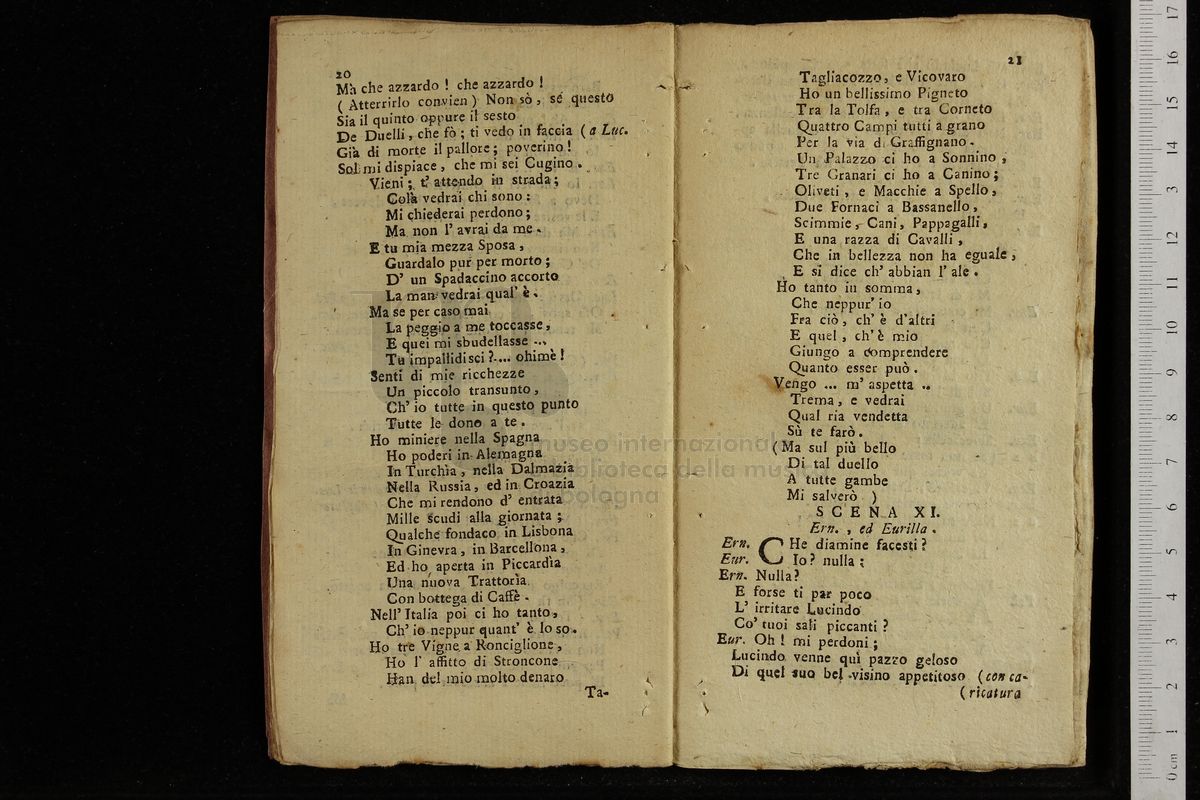 20
Mà che azzardo ! che azzardo !
( Atterrirlo convien ) Non sò , se questo
Sia il quinto oppure il sesto
De Duelli , che fò ; ti vedo in faccia ( a Luc.
Già di morte il pallore ; poverino !
Sol mi dispiace , che mi sei Cugino .
Vieni ; t' attendo in strada ;
Colà vedrai chi sono :
Mi chiederai perdono ;
Ma non l' avrai da me .
E tu mia mezza Sposa ,
Guardalo pur per morto ;
D' un Spadaccino accorto
La man vedrai qual' è .
Ma se per caso mai
La peggio a me toccasse ,
E quei mi sbudellasse ...
Tu impallidisci ? .... ohimè !
Senti di mie ricchezze
Un piccolo transunto ,
Ch' io tutte in questo punto
Tutte le dono a te .
Ho miniere nella Spagna
Ho poderi in Alemagna
In Turchìa , nella Dalmazia
Nella Russia , ed in Croazia
Che mi rendono d' entrata
Mille scudi alla giornata ;
Qualche fondaco in Lisbona
In Ginevra , in Barcellona ,
Ed ho aperta in Piccardìa
Una nuova Trattorìa
Con bottega di Caffè .
Nell' Italia poi ci ho tanto ,
Ch' io neppur quant' è lo so .
Ho tre Vigne a Ronciglione ,
Ho l' affitto di Stroncone
Han del mio molto denaro
Ta-
21
Tagliacozzo , e Vicovaro
Ho un bellissimo Pigneto
Tra la Tolfa , e tra Corneto
Quattro Campi tutti a grano
Per la via di Graffignano .
Un Palazzo ci ho a Sonnino ,
Tre Granari ci ho a Canino ;
Oliveti , e Macchie a Spello ,
Due Fornaci a Bassanello ,
Scimmie , Cani , Pappagalli ,
E una razza di Cavalli ,
Che in bellezza non ha eguale ,
E si dice ch' abbian l' ale .
Ho tanto in somma ,
Che neppur' io
Fra ciò , ch' è d'altri
E quel , ch' è mio
Giungo a comprendere
Quanto esser può .
Vengo ... m' aspetta ..
Trema , e vedrai
Qual ria vendetta
Sù te farò .
( Ma sul più bello
Di tal duello
A tutte gambe
Mi salverò )
SCENA XI.
Ern. , ed Eurilla .
Ern. CHe diamine facesti ?
Eur. Io ? nulla ;
Ern. Nulla ?
E forse ti par poco
L' irritare Lucindo
Co' tuoi sali piccanti ?
Eur. Oh ! mi perdoni ;
Lucindo venne quì pazzo geloso
Di quel suo bel visino appetitoso ( con ca-
( ricatura
museo internazionale
biblioteca della musica
bologna
0 cm 1 2 3 4 5 6 7 8 9 10 11 12 13 14 15 16 17